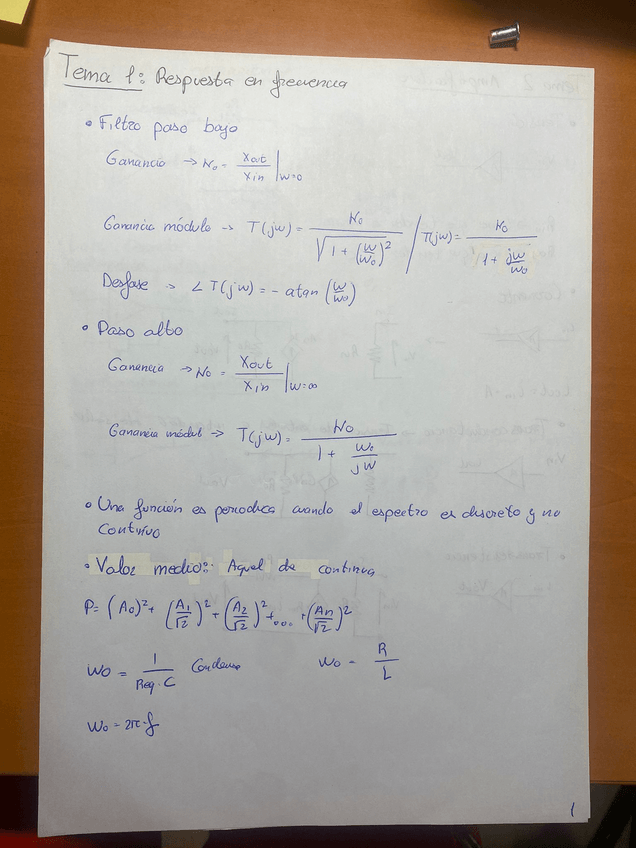 Tema 1: Respuesta en frecuencia
• Filtro paso bajo
Ganancia → No = Xout / Xin |w=0
Ganancia módulo → T(jw) = No / √(1 + (w/wo)²) / T(jw) = No / (1 + jw/wo)
Desfase → ∠ T(jw) = - atan (w/wo)
• Paso alto
Ganancia → No = Xout / Xin |w=∞
Ganancia módul → T(jw) = No / (1 + wo/jw)
• Una función es periodica cuando el espectro es discreto y no
continuo
• Valor medio: Aquel de continua
P = (A0)² + (A1/√2)² + (A2/√2)² + ... + (An/√2)²
wo = 1 / Req · C wo = R / L
wo = 2π · f
1